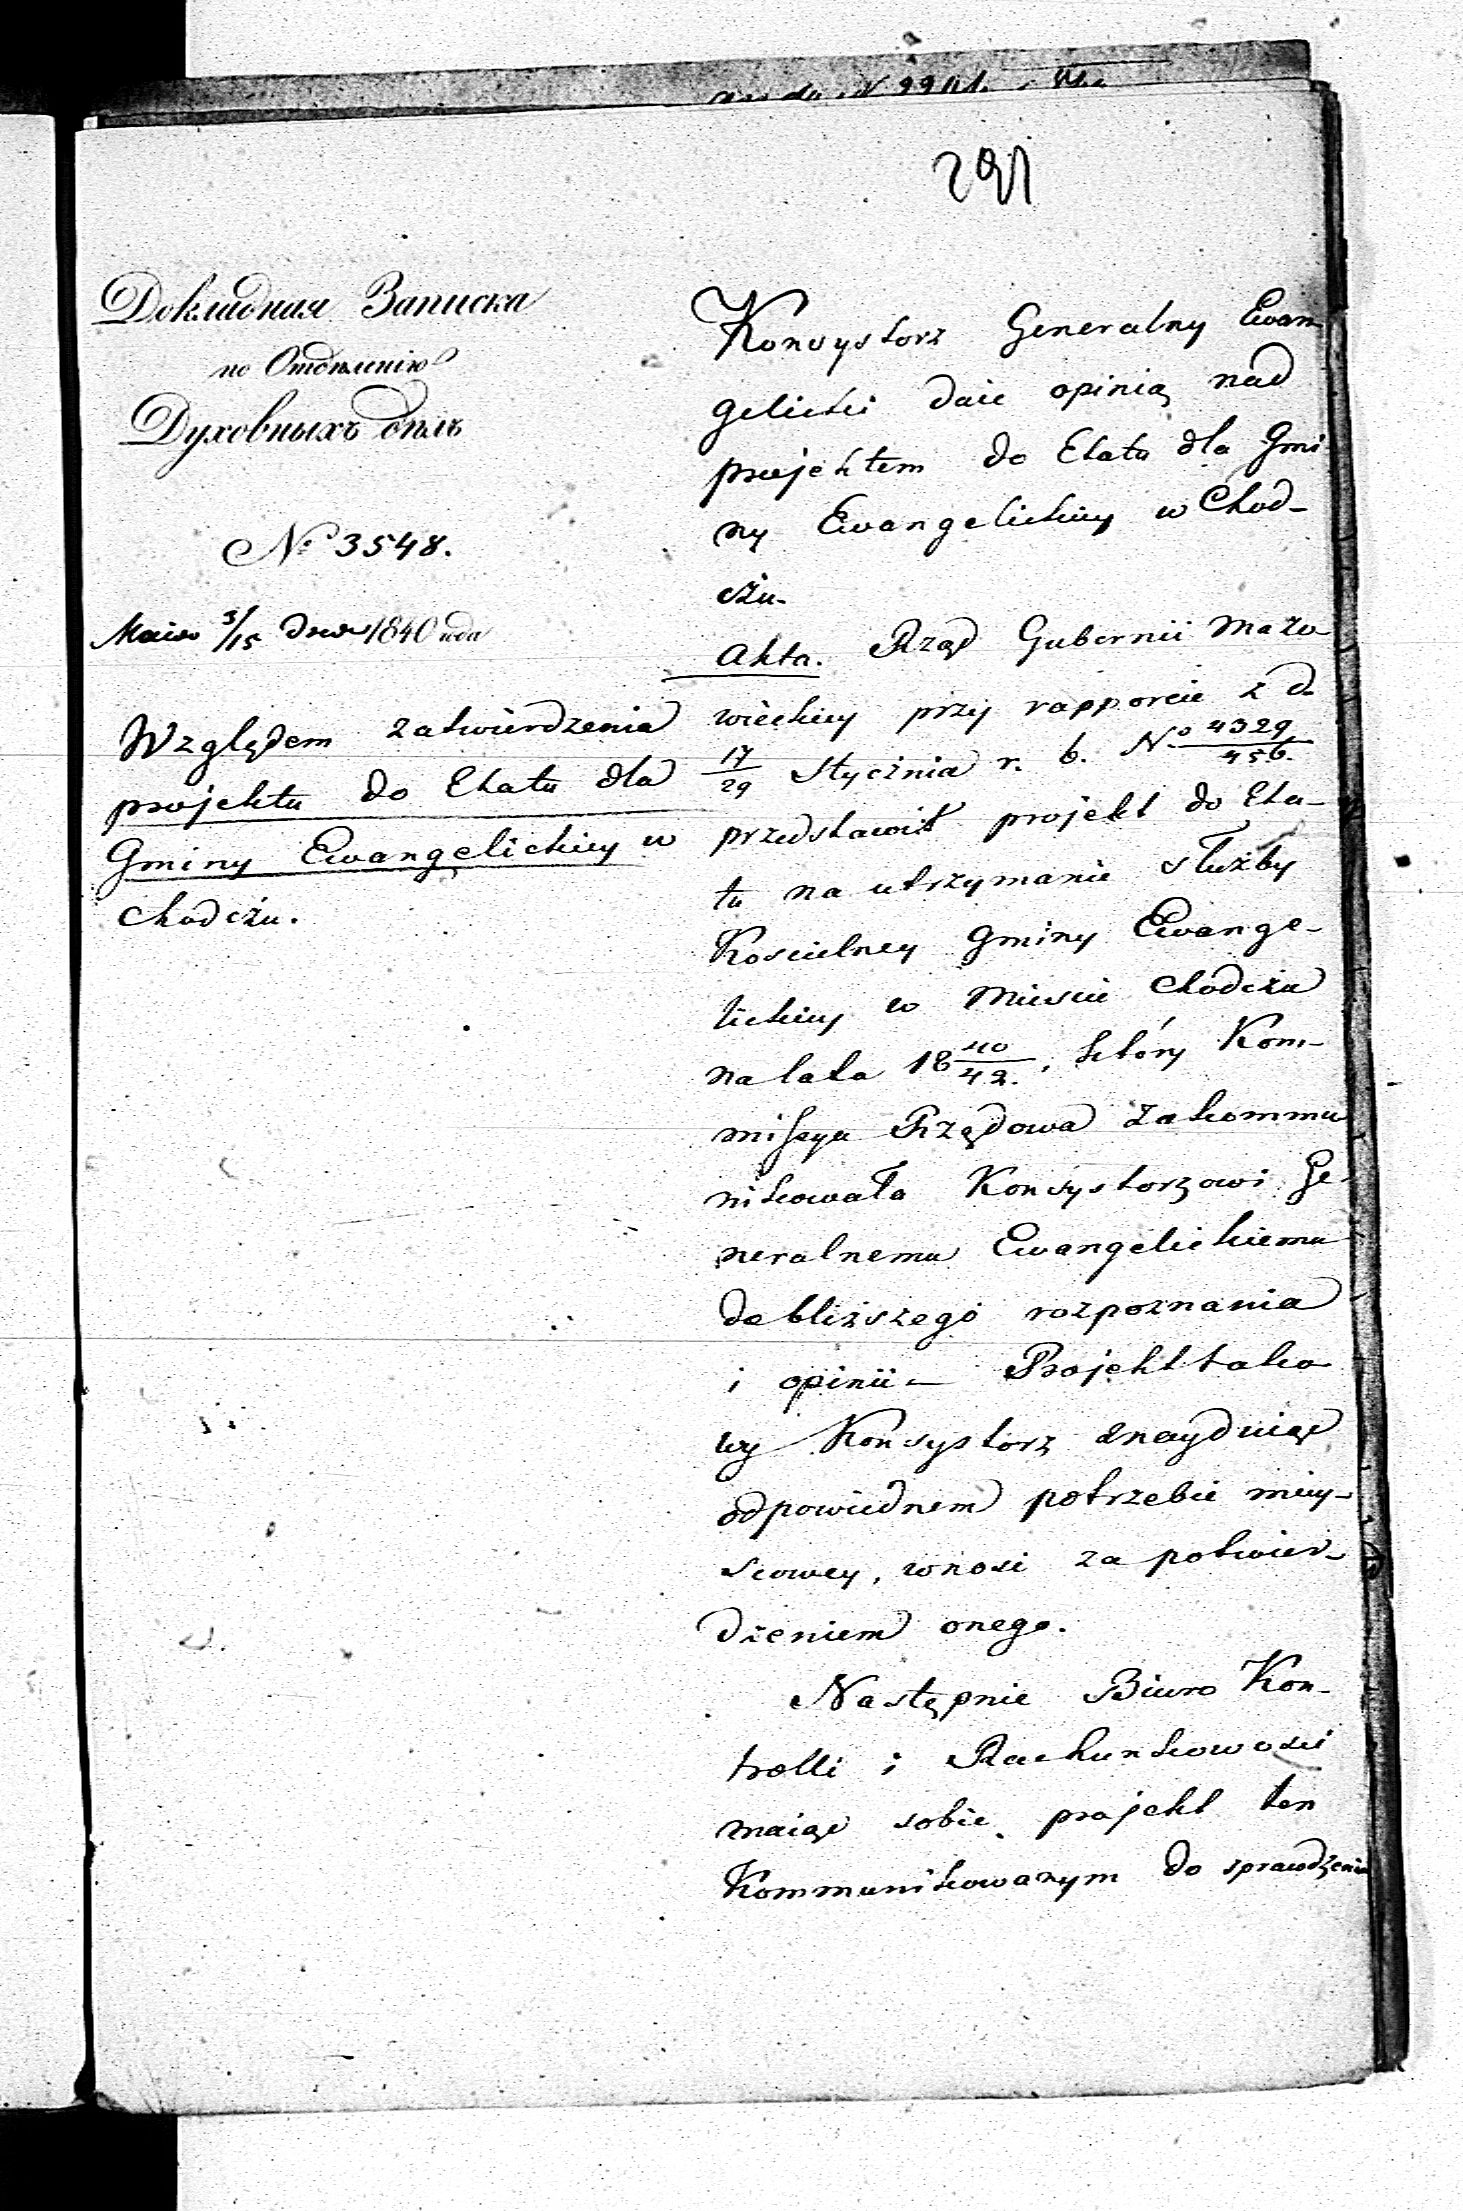 291
Докладная Записка
по Отдѣленію
Духовныхъ дѣлъ
№ 3548.
Маія 3/15 дня 1840 года
Względem zatwierdzenia
projektu do Etatu dla
Gminy Ewangelickiey w
Chodczu.
Konsystorz Generalny Ewan
gelicki daie opinią nad
projektem do Etatu dla Gmi
ny Ewangelickiey w Chod-
czu.
Akta. Rząd Gubernii Mazo
wieckiey przy rapporcie z d.
17/29 Stycznia r. b. No 4329/456.
przedstawił projekt do Eta-
tu na utrzymanie służby
Koscielney Gminy Ewange-
lickiey w Miescie Chodczu
na lata 18 40/42., który Kom-
missya Rządowa zakommu
nikowała Konsystorzowi Ge-
neralnemu Ewangelickiemu
do bliższego rozpoznania
i opinii – Projekt tako
wy Konsystorz znayduiąc
odpowiednem potrzebie miey-
scowey, wnosi za potwier-
dzeniem onego.
Następnie Biuro Kon-
trolli i Rachunkowości
maiąc sobie projekt ten
Kommunikowanym do sprawdzenia